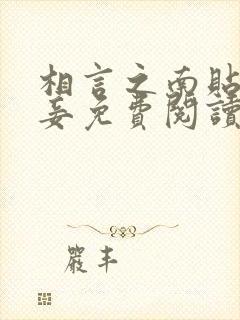 相言之南貼
妾免費閱讀
嚴丰